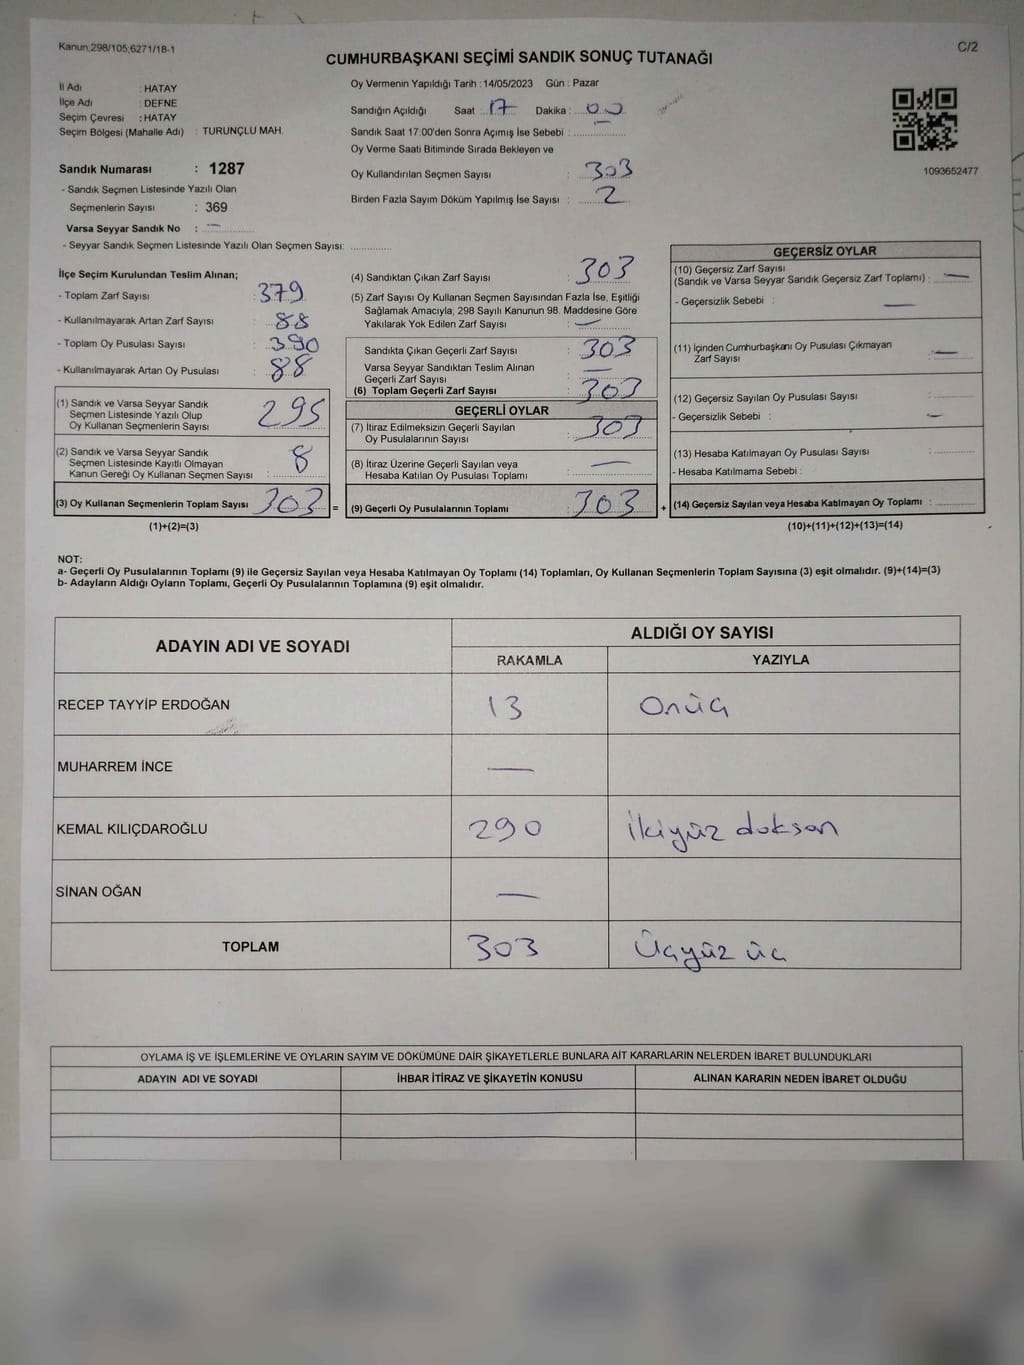 Kanun;298/105;6271/18-1
C/2
CUMHURBAŞKANI SEÇİMİ SANDIK SONUÇ TUTANAĞI
İl Adı : HATAY
İlçe Adı : DEFNE
Seçim Çevresi : HATAY
Seçim Bölgesi (Mahalle Adı) : TURUNÇLU MAH.
Sandık Numarası : 1287
- Sandık Seçmen Listesinde Yazılı Olan
Seçmenlerin Sayısı : 369
Varsa Seyyar Sandık No : —
- Seyyar Sandık Seçmen Listesinde Yazılı Olan Seçmen Sayısı: ............
Oy Vermenin Yapıldığı Tarih : 14/05/2023 Gün : Pazar
Sandığın Açıldığı Saat : 17 Dakika : 00
Sandık Saat 17:00'den Sonra Açımış İse Sebebi : —
Oy Verme Saati Bitiminde Sırada Bekleyen ve
Oy Kullandırılan Seçmen Sayısı : 303
Birden Fazla Sayım Döküm Yapılmış İse Sayısı : 2
1093652477
İlçe Seçim Kurulundan Teslim Alınan;
- Toplam Zarf Sayısı : 379
- Kullanılmayarak Artan Zarf Sayısı : 88
- Toplam Oy Pusulası Sayısı : 390
- Kullanılmayarak Artan Oy Pusulası : 88
(1) Sandık ve Varsa Seyyar Sandık
Seçmen Listesinde Yazılı Olup
Oy Kullanan Seçmenlerin Sayısı : 295
(2) Sandık ve Varsa Seyyar Sandık
Seçmen Listesinde Kayıtlı Olmayan
Kanun Gereği Oy Kullanan Seçmen Sayısı : 8
(3) Oy Kullanan Seçmenlerin Toplam Sayısı : 303 =
(1)+(2)=(3)
(4) Sandıktan Çıkan Zarf Sayısı : 303
(5) Zarf Sayısı Oy Kullanan Seçmen Sayısından Fazla İse, Eşitliği
Sağlamak Amacıyla, 298 Sayılı Kanunun 98. Maddesine Göre
Yakılarak Yok Edilen Zarf Sayısı : —
Sandıkta Çıkan Geçerli Zarf Sayısı : 303
Varsa Seyyar Sandıktan Teslim Alınan
Geçerli Zarf Sayısı : —
(6) Toplam Geçerli Zarf Sayısı : 303
GEÇERLİ OYLAR
(7) İtiraz Edilmeksizin Geçerli Sayılan
Oy Pusulalarının Sayısı : 303
(8) İtiraz Üzerine Geçerli Sayılan veya
Hesaba Katılan Oy Pusulası Toplamı : —
(9) Geçerli Oy Pusulalarının Toplamı : 303 +
GEÇERSİZ OYLAR
(10) Geçersiz Zarf Sayısı
(Sandık ve Varsa Seyyar Sandık Geçersiz Zarf Toplamı) : —
- Geçersizlik Sebebi : —
(11) İçinden Cumhurbaşkanı Oy Pusulası Çıkmayan
Zarf Sayısı : —
(12) Geçersiz Sayılan Oy Pusulası Sayısı : ............
- Geçersizlik Sebebi : —
(13) Hesaba Katılmayan Oy Pusulası Sayısı : ............
- Hesaba Katılmama Sebebi :
(14) Geçersiz Sayılan veya Hesaba Katılmayan Oy Toplamı : ............
(10)+(11)+(12)+(13)=(14)
NOT:
a- Geçerli Oy Pusulalarının Toplamı (9) ile Geçersiz Sayılan veya Hesaba Katılmayan Oy Toplamı (14) Toplamları, Oy Kullanan Seçmenlerin Toplam Sayısına (3) eşit olmalıdır. (9)+(14)=(3)
b- Adayların Aldığı Oyların Toplamı, Geçerli Oy Pusulalarının Toplamına (9) eşit olmalıdır.
ADAYIN ADI VE SOYADI ALDIĞI OY SAYISI
RAKAMLA YAZIYLA
RECEP TAYYİP ERDOĞAN 13 Onüç
MUHARREM İNCE —
KEMAL KILIÇDAROĞLU 290 İkiyüz doksan
SİNAN OĞAN —
TOPLAM 303 Üçyüz üç
OYLAMA İŞ VE İŞLEMLERİNE VE OYLARIN SAYIM VE DÖKÜMÜNE DAİR ŞİKAYETLERLE BUNLARA AİT KARARLARIN NELERDEN İBARET BULUNDUKLARI
ADAYIN ADI VE SOYADI İHBAR İTİRAZ VE ŞİKAYETİN KONUSU ALINAN KARARIN NEDEN İBARET OLDUĞU